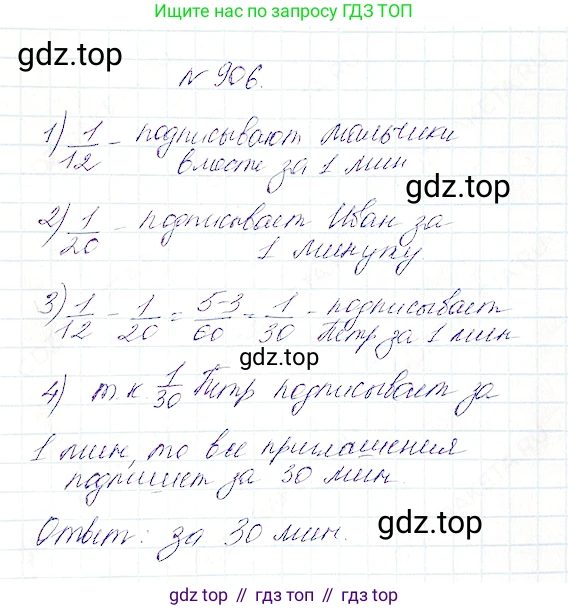 Ищите по запросу ГДЗ ТОП
gdz.top
№ 906.
1) 1/12 - подписывают мальчики
вместе за 1 мин
gdz.top
2) 1/20 - подписывает Иван за
1 минуту.
3) 1/12 - 1/20 = 5-3/60 = 1/30 - подписывает
Петр за 1 мин
gdz.top
4) т.к. 1/30 Петр подписывает за
1 мин, то все приглашения
подпишет за 30 мин.
Ответ: за 30 мин.
gdz.top
gdz top // гдз топ // гдз.top